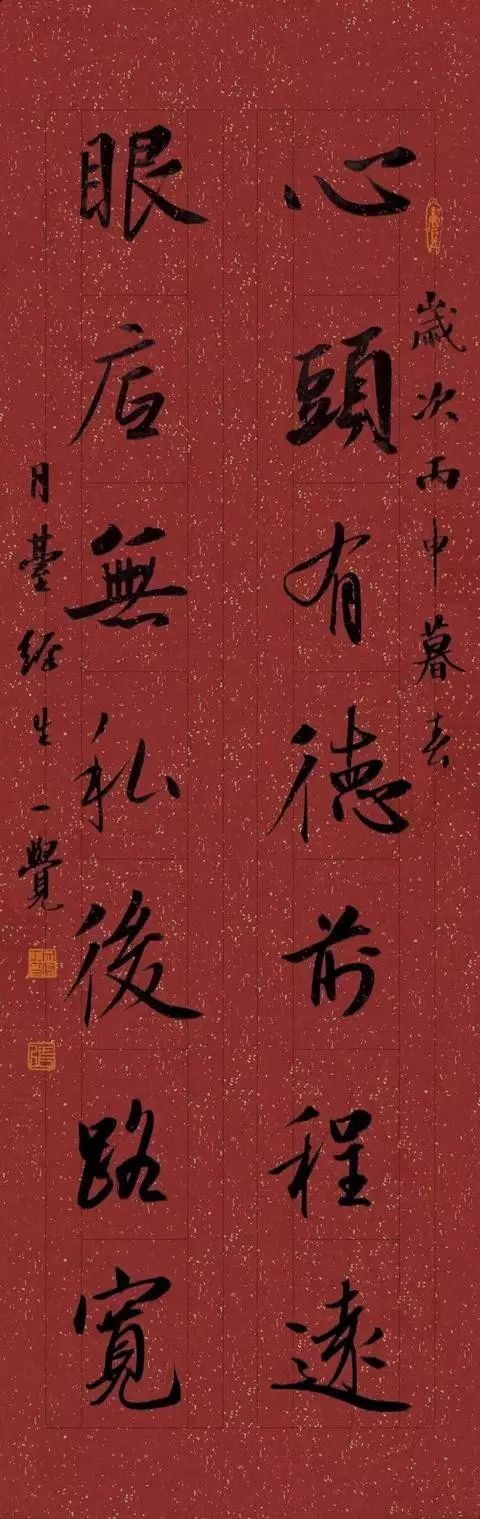 歲次丙申暮春
心頭有德前程遠
眼底無私後路寬
月臺經生一覺